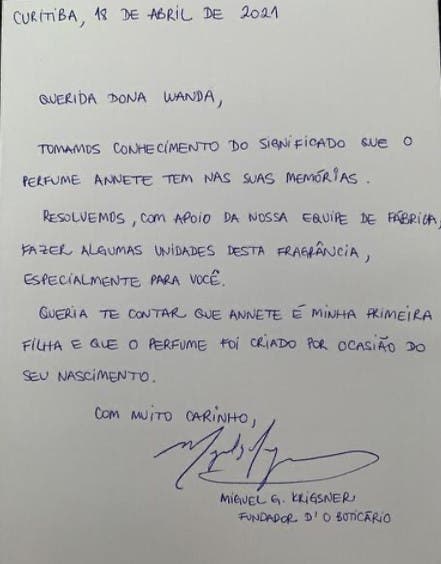 CURITIBA, 18 DE ABRIL DE 2021
QUERIDA DONA WANDA,
TOMAMOS CONHECIMENTO DO SIGNIFICADO QUE O
PERFUME ANNETE TEM NAS SUAS MEMÓRIAS.
RESOLVEMOS, COM APOIO DA NOSSA EQUIPE DE FÁBRICA,
FAZER ALGUMAS UNIDADES DESTA FRAGRÂNCIA,
ESPECIALMENTE PARA VOCÊ.
QUERIA TE CONTAR QUE ANNETE É MINHA PRIMEIRA
FILHA E QUE O PERFUME FOI CRIADO POR OCASIÃO DO
SEU NASCIMENTO.
COM MUITO CARINHO,
MIGUEL G. KRIGSNER
FUNDADOR D'O BOTICÁRIO